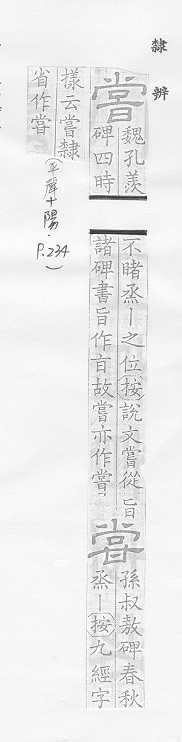 隸辨
嘗
魏孔羨
碑四時
不睹烝丨之位按說文嘗從旨
諸碑書旨作百故嘗亦作嘗
甞
孫叔敖碑春秋
烝丨按九經字
樣云嘗隸
省作甞
(平聲十陽.
P.234)